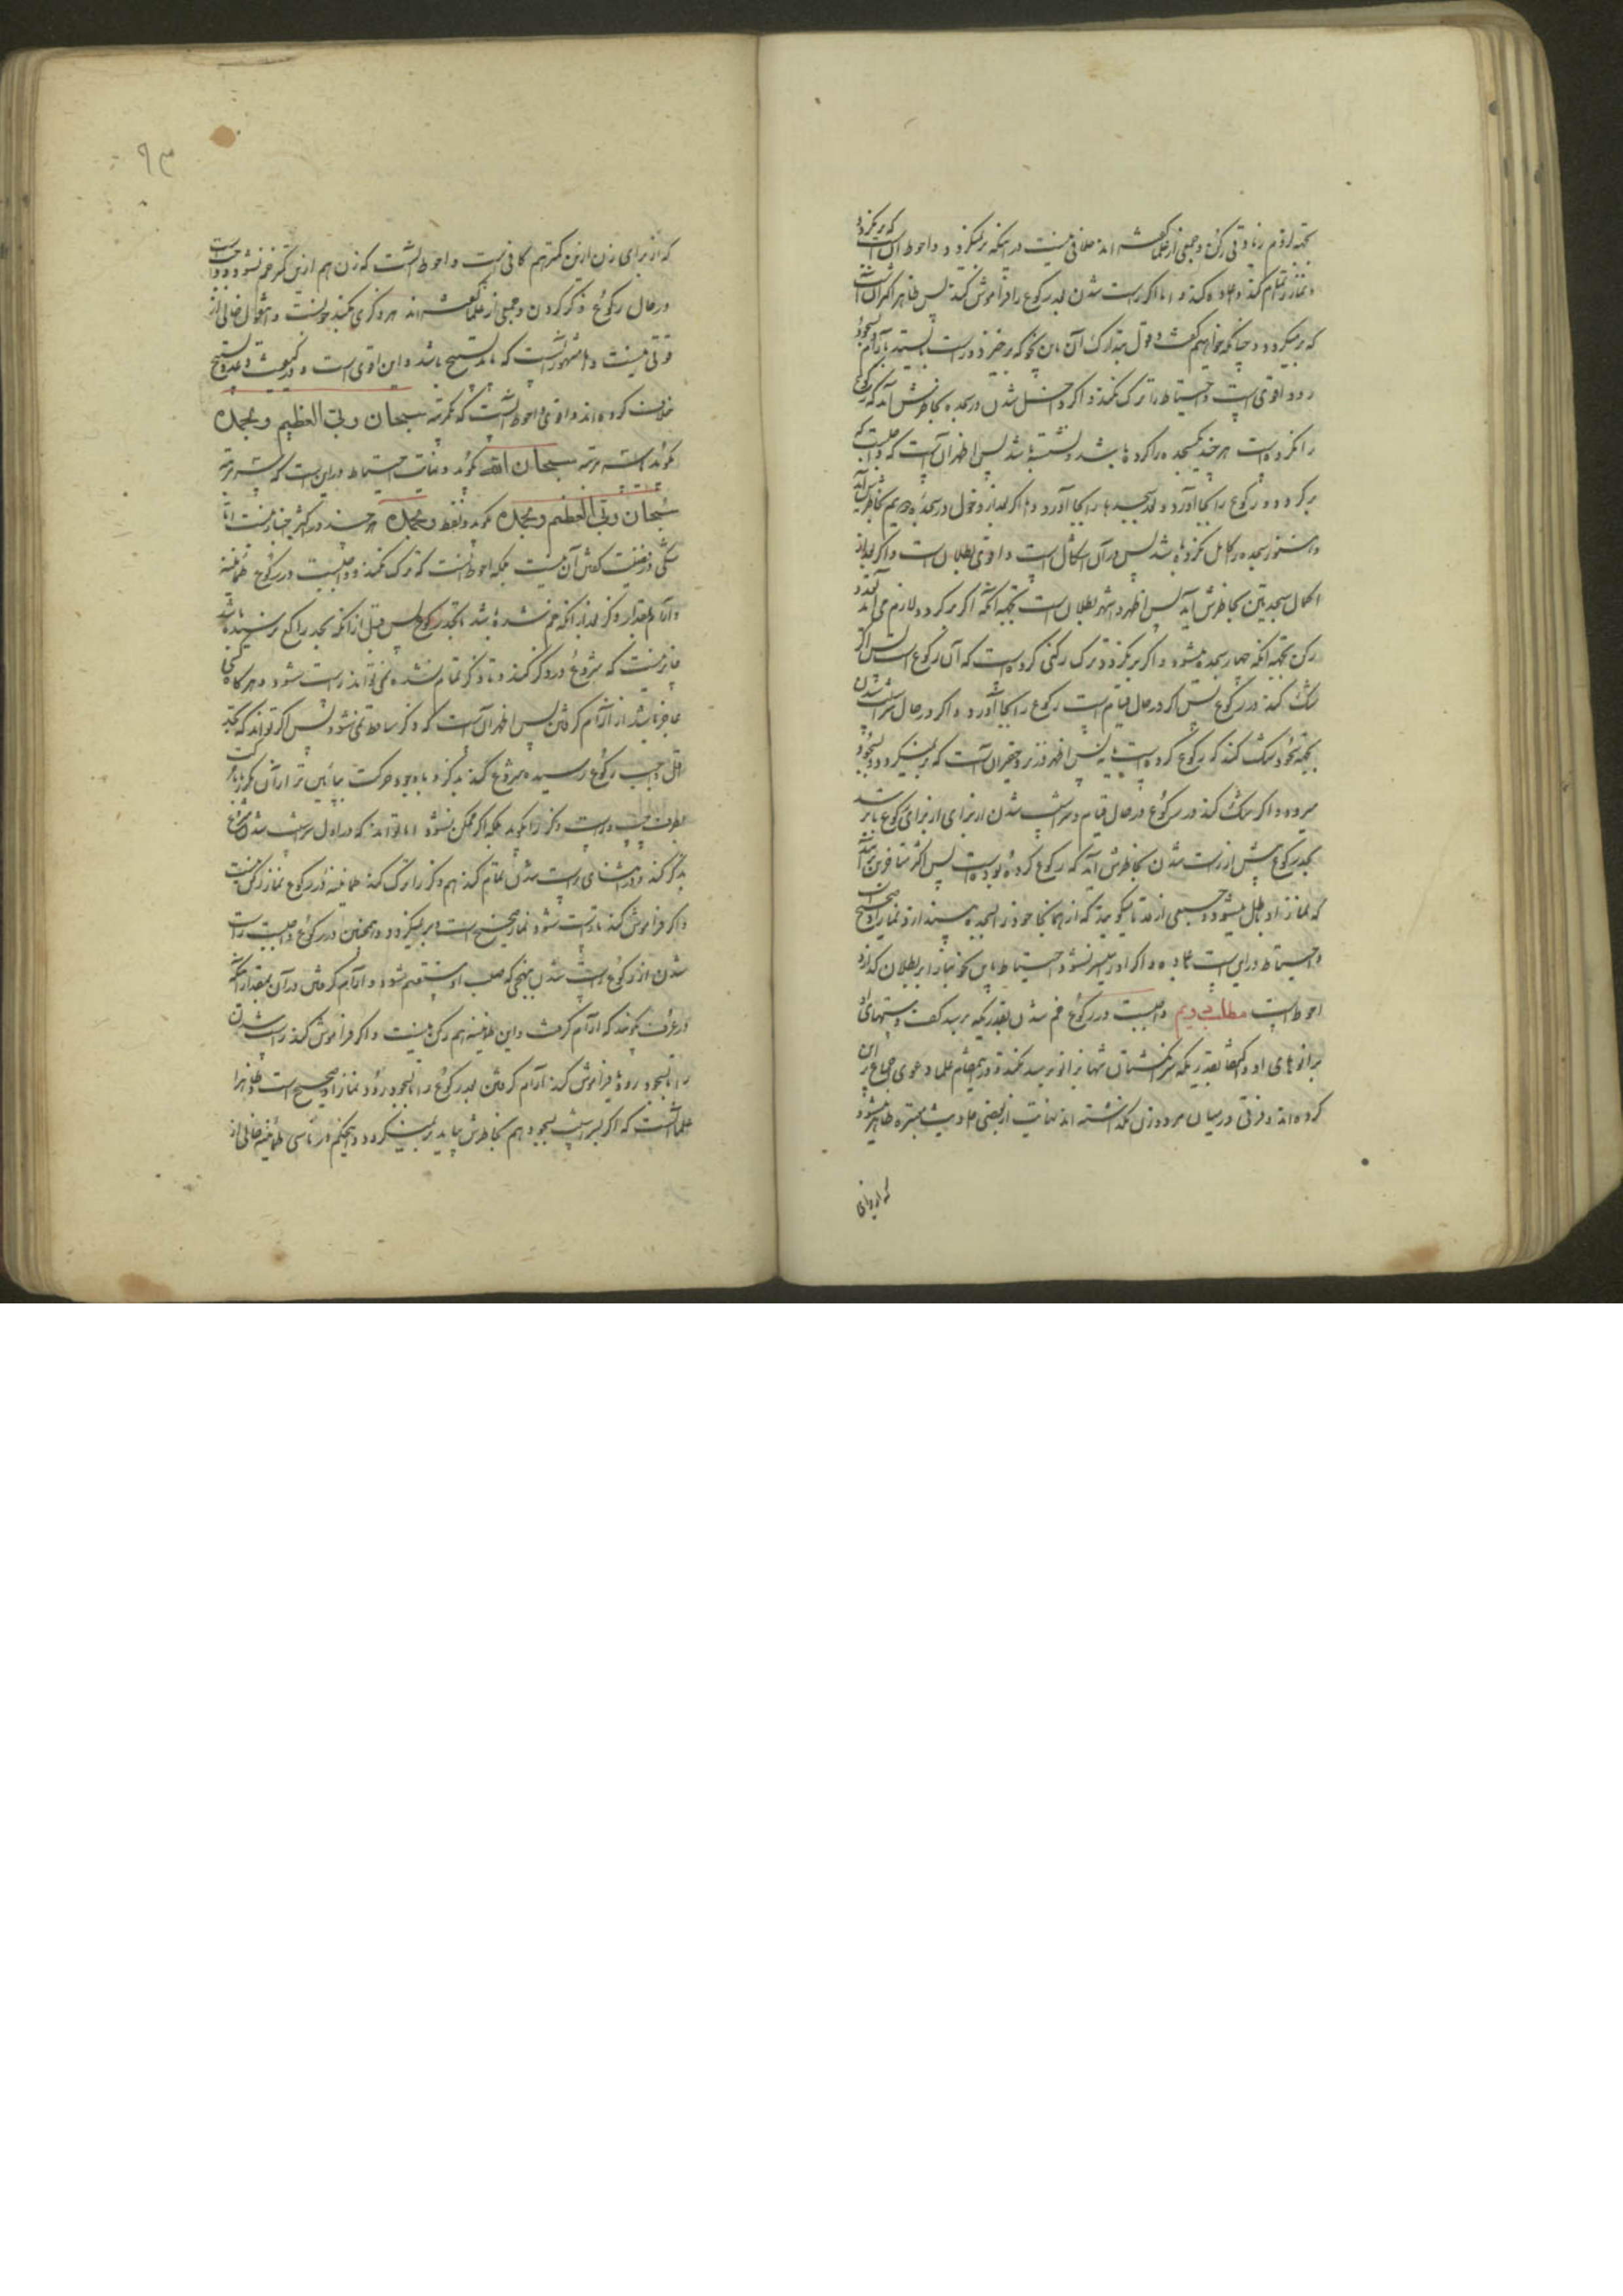 بجهة لزوم زیادتی رکن و جمعی از علما گفته اند خلافی نیست در اینکه برنمیگردد و احوط آن است که برنگردد
و نماز را تمام کند و اعاده کند و اما اگر راست شدن بعد رکوع را فراموش کند پس ظاهر آن است
که برمیگردد چنانکه خواهیم گفت و قول بتدارک آن باین نحو که برخیزد و راست بایستد با آرام و بسجود
رود اقوی است و احتیاط را ترک نکند و اگر داخل شدن در سجده بخاطرش آید که رکوع
را نکرده است هر چند یکسجده را کرده باشد و نشسته باشد پس اظهر آن است که واجبست که
برگردد و رکوع را بجا آورد و بعد سجده ها را بجا آورد و اگر بعد از دخول در سجده دویم بخاطرش آید
و هنوز سجده را کامل نکرده باشد پس در آن اشکال است و اقوی بطلان است و اگر بعد از
اکمال سجدتین بخاطرش آید پس اظهر و اشهر بطلان است بجهة آنکه اگر برگردد لازم می آید تعدد
رکن بجهة آنکه چهار سجده میشود و اگر برنگردد ترک رکنی کرده است که آن رکوع است پس اگر
شک کند در رکوع پس اگر در حال قیام است رکوع را بجا آورد و اگر در حال سراشیب شدن
بجهة سجود شک کند که رکوع کرده است یا نه پس اظهر نزد فقیر آن است که برنمیگردد و بسجود
میرود و اگر شک کند در رکوع در حال قیام و سراشیب شدن از برای رکوع تا برسد
بحد رکوع پیش از راست شدن بخاطرش آید که رکوع کرده بوده است پس اکثر متأخرین برآنند
که نماز او باطل میشود و جمعی از قدما میگویند که از همانجا خود را بسجده میندازد و نماز او صحیح است
و احتیاط در این است اعاده و اگر او را میسر نشود احتیاط باین نحو بنا را بر بطلان گذارد
احوط است مطلب دویم واجبست در رکوع خم شدن بقدریکه برسد کف دستهای او
بزانوهای او و اکتفا بقدریکه سر انگشتان تنها بزانو برسد نکند و در این مقام علما دعوی اجماع بر این
کرده اند و فرقی در میان مرد و زن نگذاشته اند نهایت از بعضی احادیث معتبره ظاهر میشود
که از برای
۹۳
که از برای زن ازین کمتر هم کافی است و احوط آنست که زن هم ازین کمتر خم نشود و واجب است
در حال رکوع ذکر کردن و جمعی از علما گفته اند هر ذکری بکند خوبست و این قول خالی از
قوتی نیست و اما مشهور آنست که باید تسبیح باشد و این اقوی است و در کمیت و عدد تسبیح
خلاف کرده اند و اقوی و احوط آنست که یکمرتبه سبحان ربی العظیم و بحمده
گوید یا سه مرتبه سبحان الله گوید و نهایت احتیاط در این است که سه مرتبه
سبحان ربی العظیم و بحمده گوید و لفظ و بحمده هر چند در اکثر اخبار نیست اما
شکی در فضیلت گفتن آن نیست بلکه احوط آنست که ترک نکند و واجبست در رکوع طمأنینه
و آرام بقدر ذکر بعد از آنکه خم شده باشد تا بحد رکوع پس قبل از آنکه بحد راکع نرسیده باشد
جایز نیست که شروع در ذکر کند و تا ذکر تمام نشده نمی تواند راست شود و هرگاه کسی
عاجز باشد از آرام گرفتن پس اظهر آن است که ذکر ساقط نمی شود پس اگر تواند که بحد
اقل واجب رکوع رسیده شروع کند بذکر و با وجود حرکت پایین تر از آن
بطرف چپ و راست ذکر را گوید بلکه اگر ممکن نشود اما تواند که در اول سراشیب شدن شروع
بذکر کند و در اثنای راست شدن تمام کند هم ذکر را ترک نکند طمأنینه در رکوع نماز رکن نیست
و اگر فراموش کند تا راست شود نماز صحیح است و برنمیگردد و همچنین در رکوع واجبست راست
شدن از رکوع راست شدن بنهجی که صلب او مستقیم شود و آرام گرفتن در آن بقدر آنکه
در عرف گویند که آرام گرفت و این طمأنینه هم رکن نیست و اگر فراموش کند راست شدن
را تا بسجود رود یا فراموش کند آرام گرفتن بعد رکوع را تا بسجود رود نماز او صحیح است و ظاهرا
علما آنست که اگر بسر راست بسجود هم بخاطرش بیاید برنمیگردد و این حکم در ناسی طمأنینه خالی از